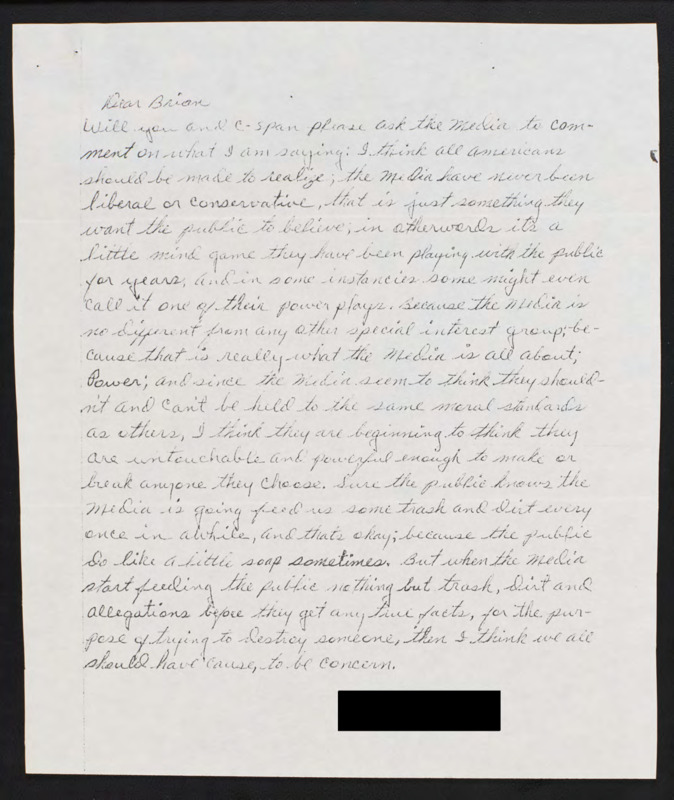 Dear Brian
Will you and C-Span please ask the Media to com-
ment on what I am saying: I think all americans
should be made to realize; the Media have never been
liberal or conservative, that is just something they
want the public to believe; in otherwords it's a
little mind game they have been playing with the public
for years; and in some instancies some might even
call it one of their power plays. Because the Media is
no different from any other special interest group; be-
cause that is really what the Media is all about;
Power; and since the Media seem to think they should-
n't and can't be held to the same moral standards
as others, I think they are beginning to think they
are untouchable and powerful enough to make or
break anyone they choose. Sure the public knows the
Media is going feed us some trash and dirt every
once in awhile, and thats okay; because the public
do like a little soap sometimes. But when the Media
start feeding the public nothing but trash, dirt and
allegations before they get any true facts, for the pur-
pose of trying to destroy someone, then I think we all
should have cause, to be concern.